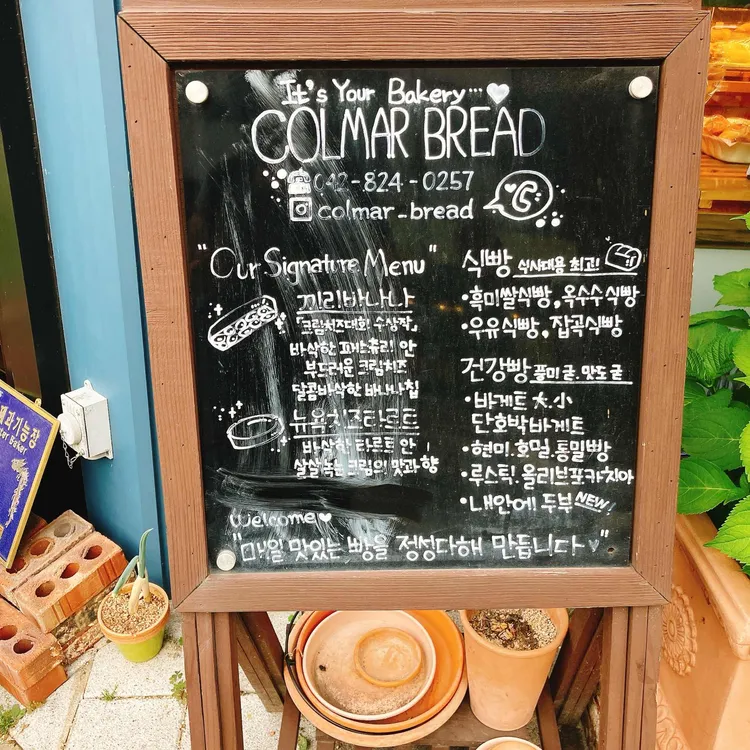 It's Your Bakery...♥
COLMAR BREAD
042-824-0257
colmar_bread
"Our Signature Menu"
끼리바나나
「크림치즈대회 수상작」
바삭한 패스츄리 안
부드러운 크림치즈
달콤바삭한 바나나칩
뉴욕치즈타르트
바삭한 타르트 안
살살 녹는 크림의 맛과 향
Welcome♥
"매일 맛있는 빵을 정성다해 만듭니다♥"
식빵 식사대용 최고!
•흑미쌀식빵, 옥수수식빵
•우유식빵, 잡곡식빵
건강빵 풍미 굳, 맛도 굳
•바게트 大小
단호박바게트
•현미, 호밀, 통밀빵
•루스틱, 올리브포카치아
•내안에 두부 NEW!
과기능장
ter Baker